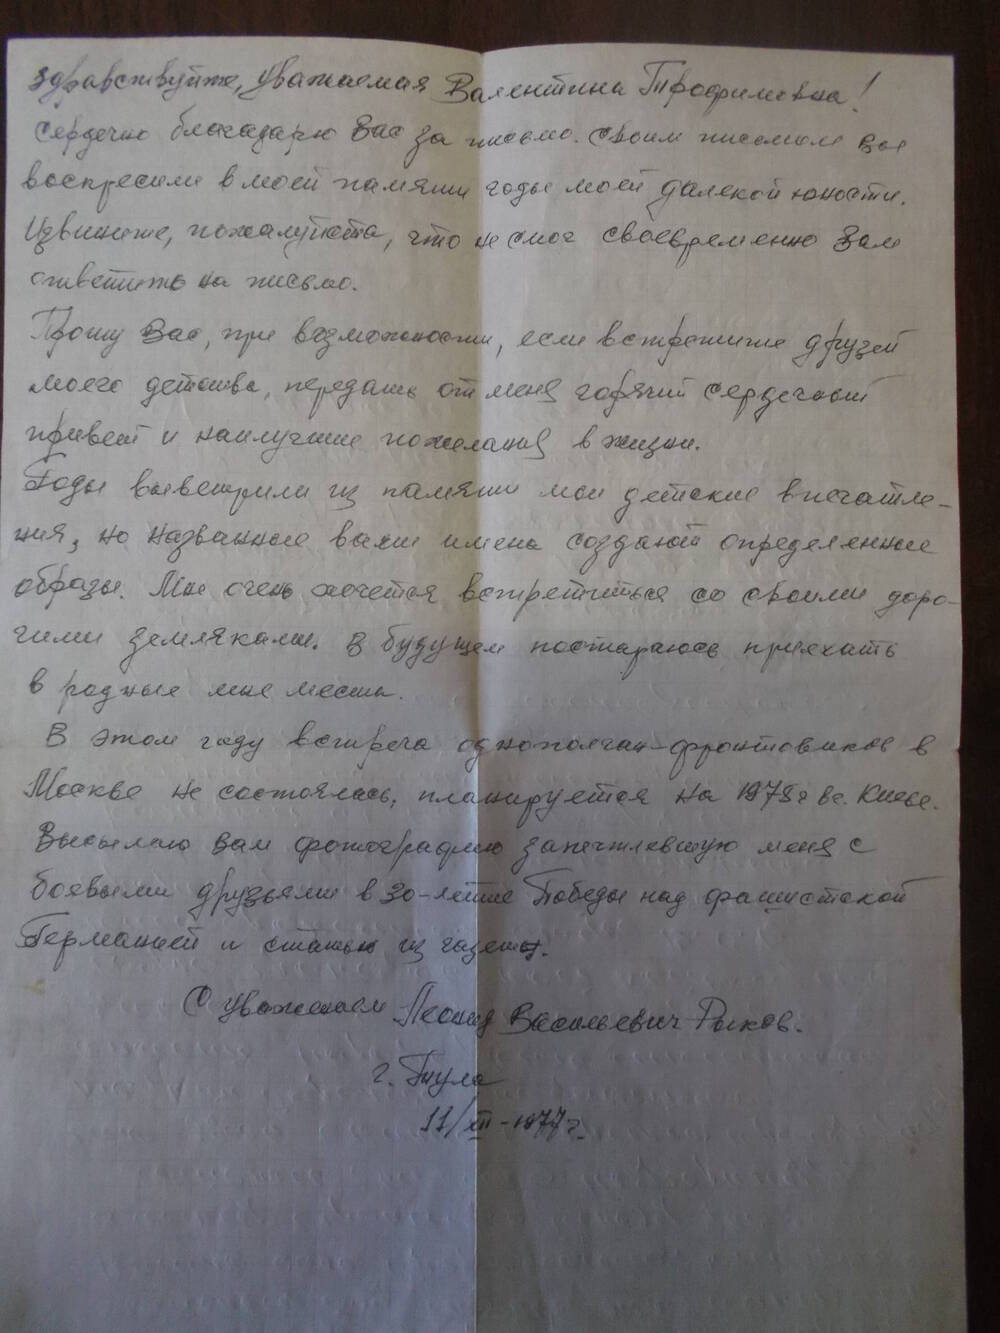 Здравствуйте, уважаемая Валентина Трофимовна!
Сердечно благодарю Вас за письмо. Своим письмом Вы
воскресили в моей памяти годы моей далекой юности.
Извините, пожалуйста, что не смог своевременно Вам
ответить на письмо.
Прошу Вас, при возможности, если встретите друзей
моего детства, передать от меня горячий сердечный
привет и наилучшие пожелания в жизни.
Годы выветрили из памяти мои детские впечатле-
ния, но названные вами имена создают определенные
образы. Мне очень хочется встретиться со своими доро-
гими земляками. В будущем постараюсь приехать
в родные мне места.
В этом году встреча однополчан-фронтовиков в
Москве не состоялась, планируется на 1978 г в г. Киеве.
Высылаю Вам фотографию запечтлевшую меня с
боевыми друзьями в 30-летие Победы над фашистской
Германией и статью из газеты.
С уважением Леонид Васильевич Рыков.
г. Тула
11/XII-1977 г.